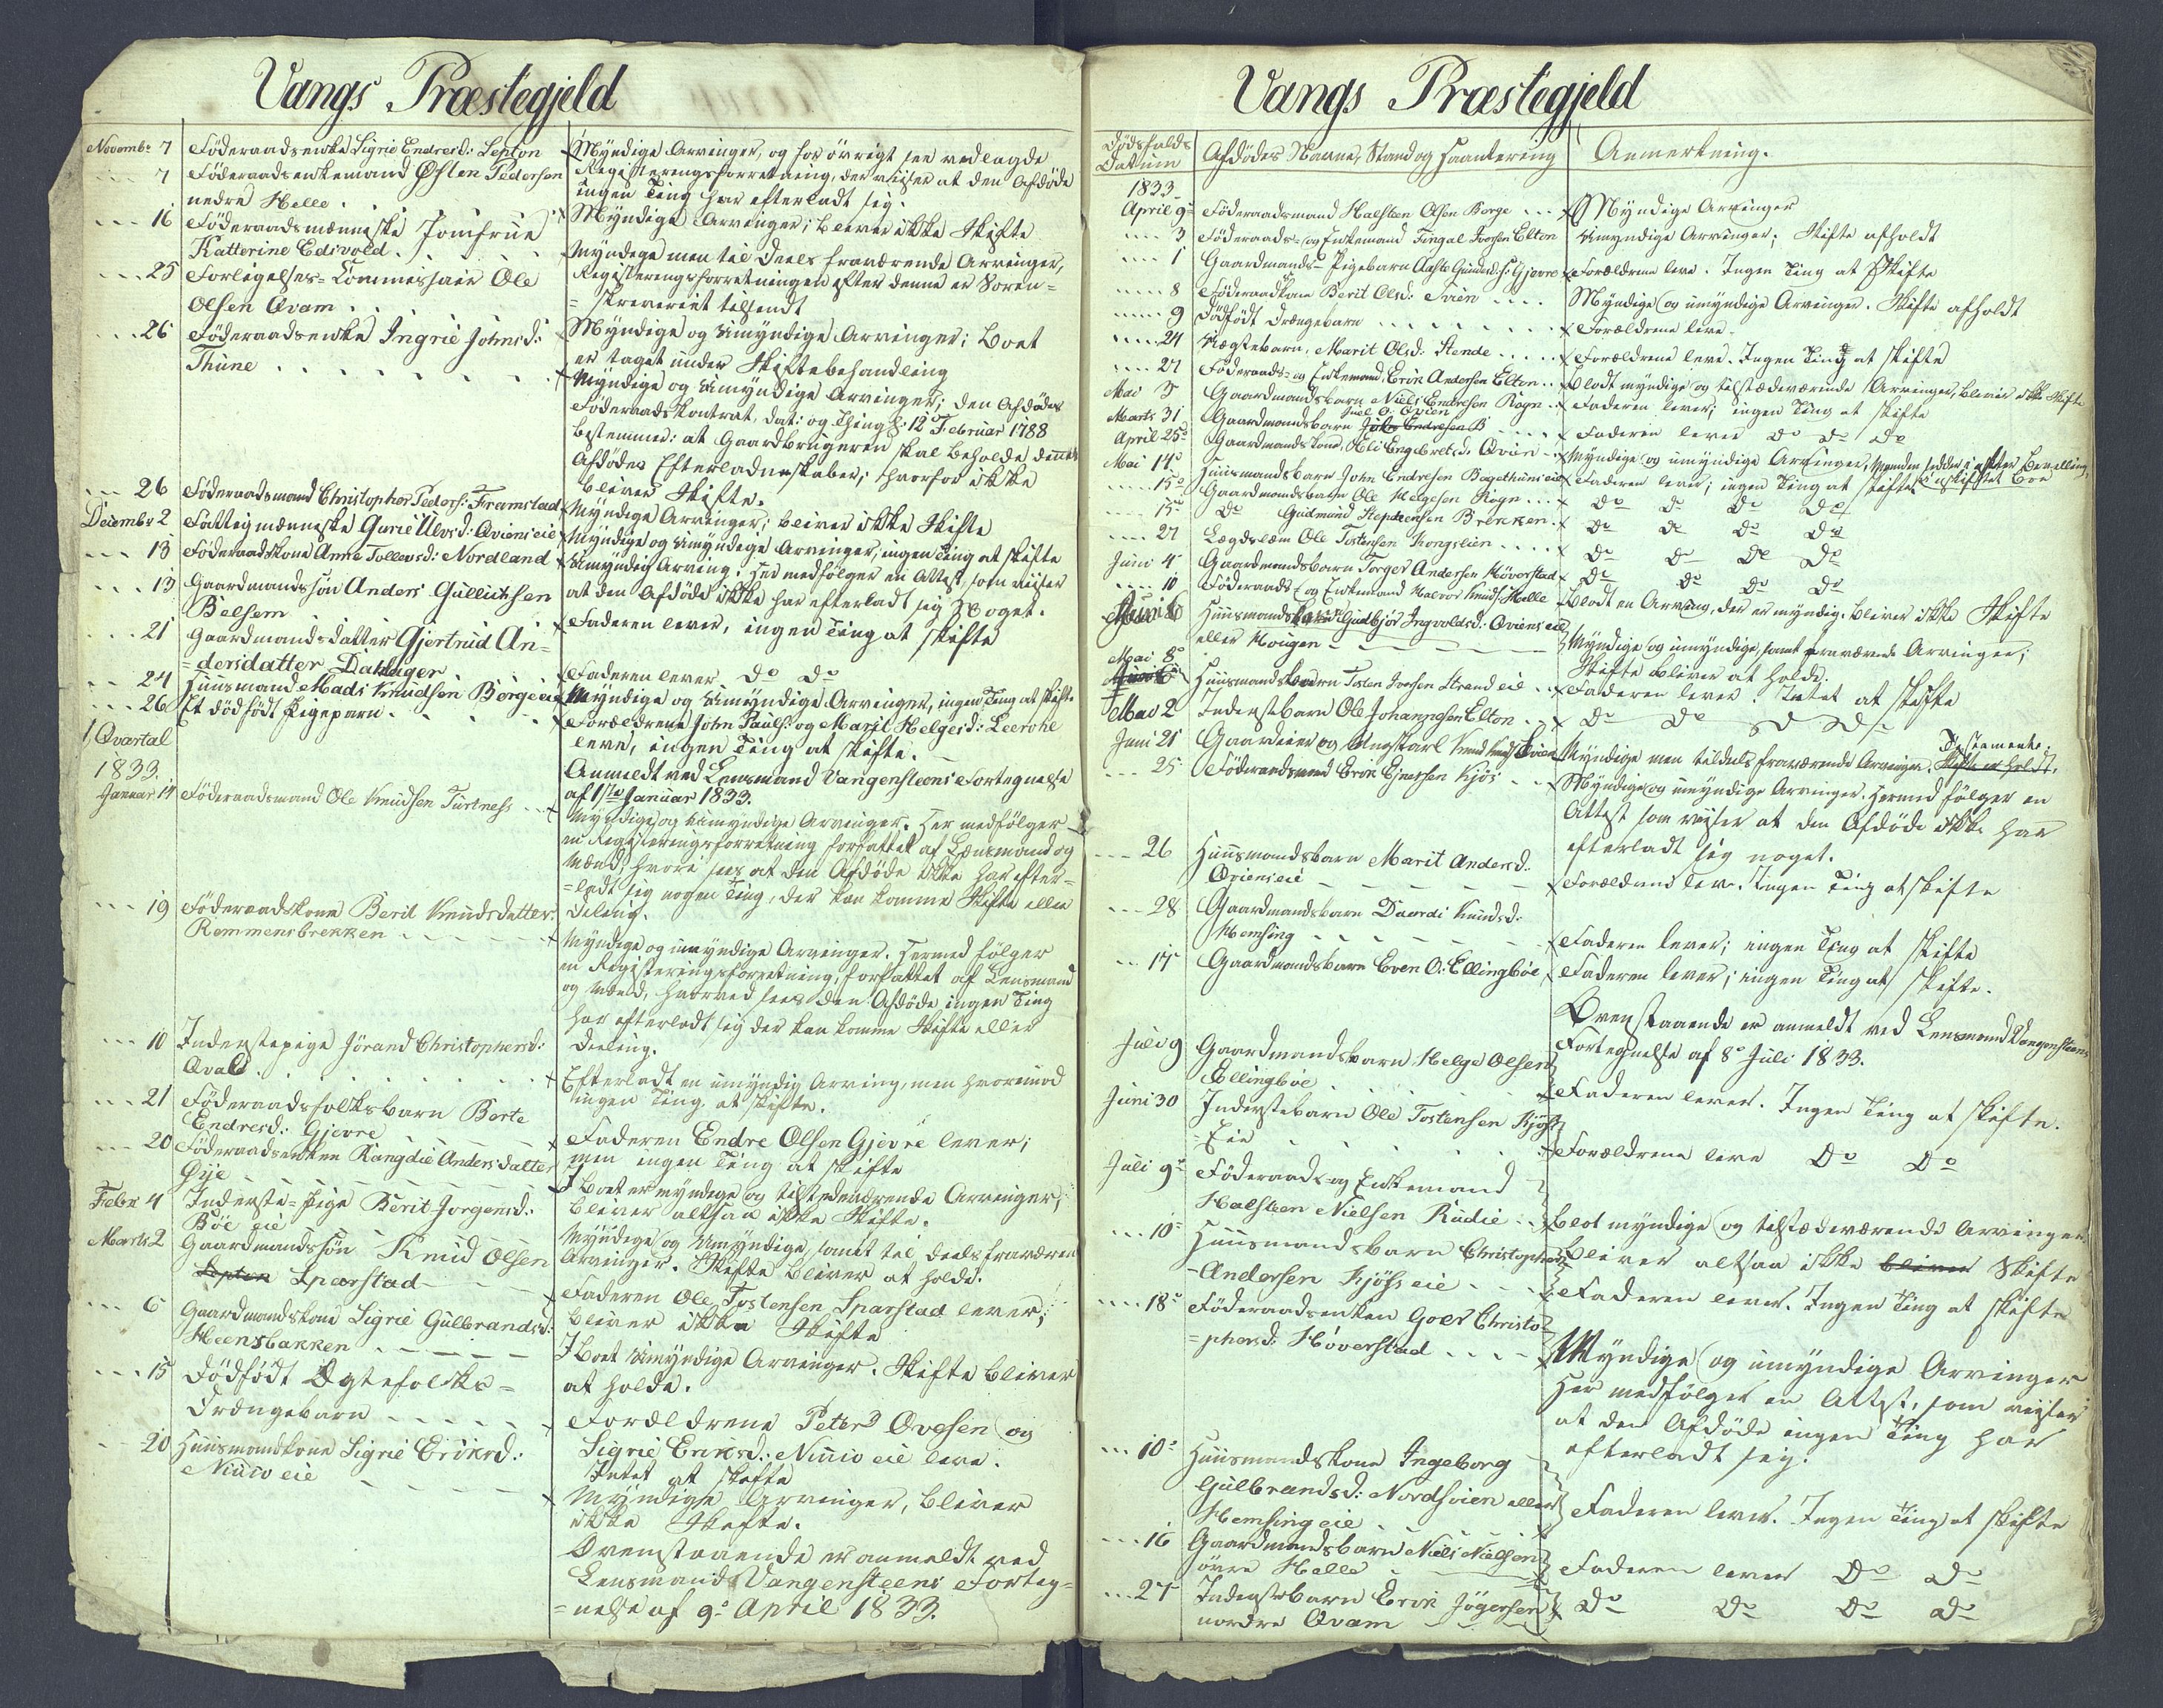 Vangs Præstegjeld
Novembr 7 Föderaadsenke Sigrie Endresd: Lepton
7 Föderaadsenkemand Østen Pedersen
nedre Helle.
Myndige Arvinger, og for övrigt see vedlagde
Registeringsforretning, der viiser at den Afdöde
ingen Ting har efterladt sig.
16 Föderaadsmenniske Jomfrue
Katterine Edivold.
Myndige Arvinger; bliver ikke Skifte
25 Forligelses-Commissair Ole
Olsen Qvam
Myndige men til Deels fraværende Arvinger,
Registeringsforretningen efter denne er Soren=
=skriveriet tilsendt
26 Föderaadsenke Ingrie Johnsd:
Thune
Myndige og Umyndige Arvinger; Boet
er taget under Skiftebehandling
26 Föderaadsmand Christopher Peders: Framstad
Myndige og Umyndige Arvinger; den Afdödes
Föderaadskontrat, dat: og Thingl: 12 Februar 1788
bestemmer: at Gaardbrugeren skal beholde dennes
Afdödes Efterladenskaber; hvorfor ikke
bliver Skifte.
Decembr 2 Fattigmenniske Gurie Ulvsd: Qvienseie
Myndige Arvinger; bliver ikke Skifte
13 Föderaadskone Anne Tollevsd: Nordland
Myndige og Umyndige Arvinger; ingen Ting at skifte
13 Gaardmandssön Anders Gullichsen
Belsem
Umyndig Arving. Her medfölger en Attest, som viiser
at den Afdöde ikke har efterladt sig Noget.
21 Gaardmandsdatter Gjertrud An=
=dersdatter Dahlager
Faderen lever, ingen Ting at skifte
24 Huusmand Mads Knudsen Borge eie
Faderen lever Do Do
26 Et dödfödt Pigebarn.
Myndige og Umyndige Arvinger, ingen Ting at skifte
Forældrene John Pauls: og Marit Helgesd: Leerohl
leve, ingen Ting at skifte.
Anmeldt ved Lensmand Vangensteens Fortegnelse
af 1ste Januar 1833.
1 Qvartal
1833.
Januar 14 Föderaadsmand Ole Knudsen Turtness
Myndige og Umyndige Arvinger. Her medfölger
en Registeringsforretning forfattet af Lensmand og
Mænd, hvori sees at den Afdöde ikke har efter=
=ladt sig nogen Ting, der kan komme Skifte eller
Deling.
19 Föderaadskone Berit Knudsdatter
Remmensbrekken
Myndige og umyndige Arvinger. Hermed fölger
en Registeringsforretning, forfattet af Lensmand
og Mænd, hvorved sees den Afdöde ingen Ting
har efterladt sig der kan komme Skifte eller
Deeling.
10 Inderstepige Jörand Christophersd:
Qvale
Efterladt en umyndig Arving, men hvorimod
ingen Ting at skifte.
21 Föderaadsfolksbarn Berte
Endresd: Gjevre
Faderen Endre Olsen Gjevre lever;
men ingen Ting at skifte
20 Föderaadsenken Rangdie Andersdatter
Øye
I Boet er myndige og tilstedeværende Arvinger,
bliver altsaa ikke Skifte.
Febr 4 Inderste-Pige Berit Jorgensd:
Böe eie
Myndige og Umyndige, samt til deels fraværen
Arvinger. Skifte bliver at holde.
Marts 2 Gaardmandssön Knud Olsen
Lepton Sparstad
Faderen Ole Tostensen Sparstad lever;
bliver ikke Skifte
6 Gaardmandskone Sigrie Gulbrandsd:
Heensbakken
I Boet Umyndige Arvinger. Skifte bliver
at holde.
15 Dödfödt Ægtefolks=
Drængebarn
Forældrene Peter Ovesen og
Sigrie Eriksd: Nuuio eie leve.
Intet at skifte
20 Huusmandkone Sigrie Eriksd:
Nuuio eie
Myndige Arvinger, bliver
ikke Skifte.
Ovenstaaende er anmeldt ved
Lensmand Vangensteens Forteg=
=nelse af 9 April 1833.
Vangs Præstegjeld
Dödsfalds Datum Afdödes Navne, Stand og Haantering Anmerkning.
1833
April 9 Föderaadsmand Halsten Olsen Borge Myndige Arvinger
3 Föderaads- og Enkemand Tingal Iversen Elton Umyndige Arvinger; Skifte afholdt
1 Gaardmands-Pigebarn Gjevre Forældrene leve. Ingen Ting at Skifte
8 Föderaadkone Berit Olsd: Myndige og umyndige Arvinger. Skifte afholdt
9 Dödfödt Drængebarn Forældrene leve.
24 Ægtebarn, Marit Olsd: Stende Forældrene leve. Ingen Ting at skifte
27 Föderaads- og Enkemand, Erik Andersen Elton Blodt myndige og tilstædeværende Arvinger, bliver ikke Skifte
Mai 3 Gaardmandsbarn Niels Endresen Rogn Faderen lever; ingen Ting at skifte
Marts 31 Gaardmandsbarn Juel O: Qvien Faderen lever Do Do Do
April 25 Gaardmandskone, Eli Engebretsd. Qvien Myndige og umyndige Arvinger, Manden sidder efter Bevilling i uskiftet Boe
Mai 14 Huusmandsbarn John Endresen Bagethuneie Faderen lever; ingen Ting at skifte
15 Gaardmandsbarn Ole Helgesen Rogn Do Do Do Do
15 Do Gudmund Stephensen Brekken Do Do Do Do
27 Lægdslem Ole Tostensen Kongslien Do Do Do Do
Juni 4 Gaardmandsbarn Torger Andersen Höverstad Do Do Do Do
10 Föderaads og Enkemand Halvor Knuds: Helle Blodt en Arving, der er myndig. bliver ikke Skifte
Huusmands Gudbjör Ingvoldsd: Qviens eie
eller Hougen
Myndige og umyndige, samt fraværende Arvinger;
Skifte bliver at holde.
Mai 8 Huusmandsbarn Tosten Iversen Strand eie Faderen lever. Intet at skifte
Mai 2 Inderstbarn Ole Johannesen Elton Do Do Do Do
Juni 21 Gaardeier og Ungkarl Knud Knuds Qvien Myndige men tildeels fraværende Arvinger. Skifte er holdt. Testamente:
25 Föderaadsmand Erik Ejnersen Kjös
Myndige og umyndige Arvinger. Hermed fölger en
Attest som viiser at den Afdöde ikke har
efterladt sig noget.
26 Huusmandsbarn Marit Andersd:
Qvienseie
Forældrene leve. Ingen Ting at skifte
28 Gaardmandsbarn Daardi Knudsd:
Hemsing
Faderen lever; ingen Ting at skifte
14 Gaardmandsbarn Even O: Ellingböe Faderen lever; ingen Ting at skifte.
Ovenstaaende er anmeldt ved Lensmand Vangensteens
Fortegnelse af 8 Juli 1833.
Juli 9 Gaardmandsbarn Helge Olsen
Ellingböe
Faderen lever. Ingen Ting at skifte.
Juni 30 Inderstebarn Ole Tostensen Kjös
=Eie
Forældrene leve Do Do
Juli 9 Föderaads- og Enkemand
Halsteen Nielsen Rudie
Blot myndige og tilstædeværende Arvinger
bliver altsaa ikke bliver Skifte
10 Huusmandsbarn Christopher
Andersen Kjöss eie
Faderen lever. Ingen Ting at skifte
18 Föderaadsenken Goer Christo=
=phersd: Höverstad
Myndige og umyndige Arvinger
Her medfölger en Attest, som viiser
at den Afdöde ingen Ting har
efterladt sig.
10 Huusmandskone Ingeborg
Gulbrandsd: Nordsvien eller
Hemsing eie
Faderen lever. Ingen Ting at skifte
16 Gaardmandsbarn Niels Nielsen
övre Helle
Faderen lever Do Do
27 Inderstebarn Erik Jögersen
nordre Qvam
Do Do Do Do